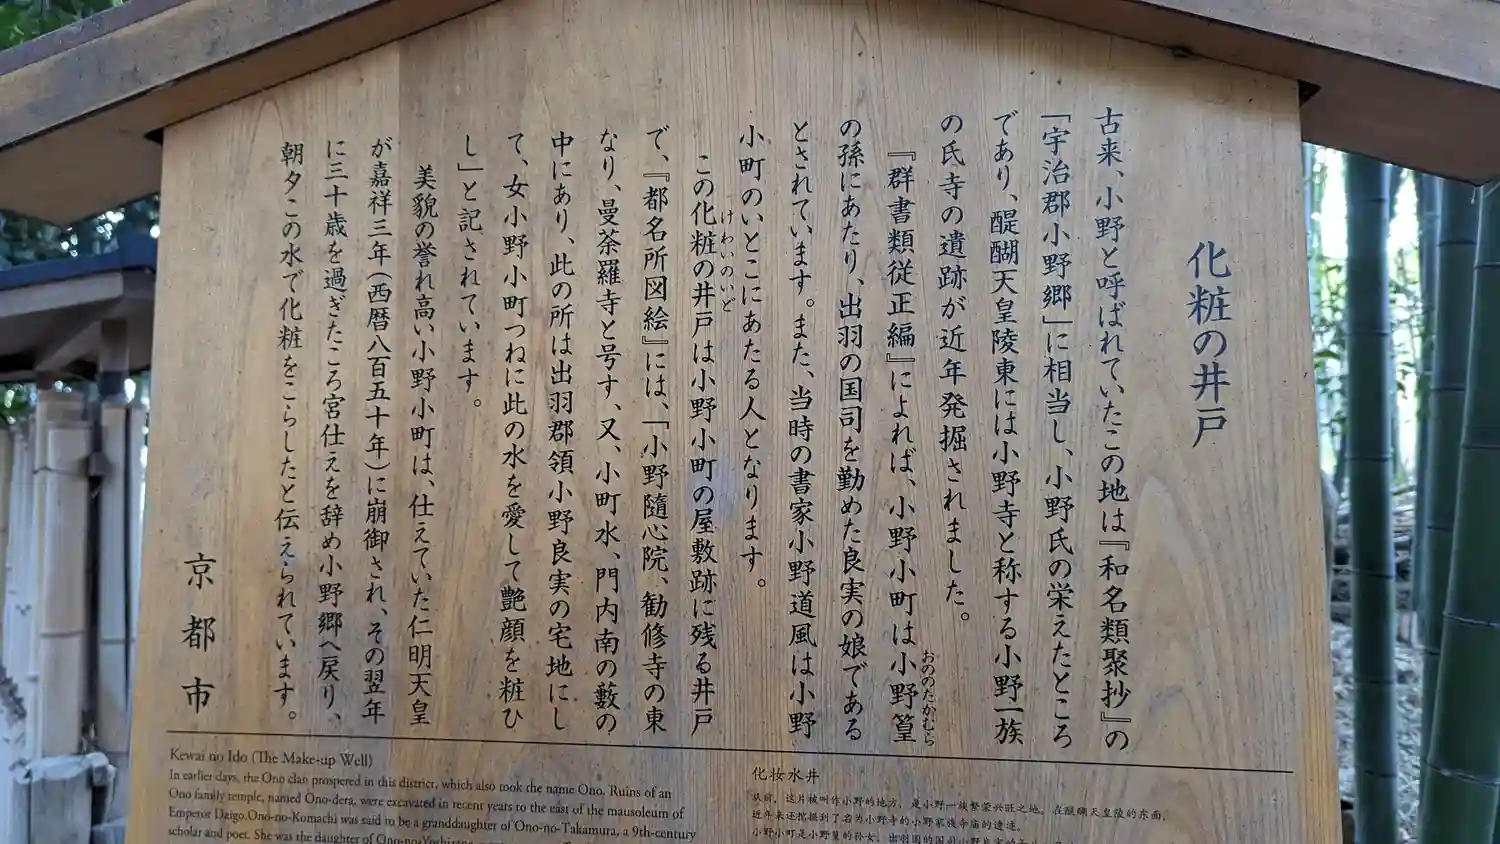 化粧の井戸
古来、小野と呼ばれていたこの地は『和名類聚抄』の
「宇治郡小野郷」に相当し、小野氏の栄えたところ
であり、醍醐天皇陵東には小野寺と称する小野一族
の氏寺の遺跡が近年発掘されました。
『群書類従正編』によれば、小野小町は小野篁
おののたかむら
の孫にあたり、出羽の国司を勤めた良実の娘である
とされています。また、当時の書家小野道風は小野
小町のいとこにあたる人となります。
けわいのいど
この化粧の井戸は小野小町の屋敷跡に残る井戸
で、『都名所図絵』には、「小野隨心院、勧修寺の東
なり、曼荼羅寺と号す、又、小町水、門内南の藪の
中にあり、此の所は出羽郡領小野良実の宅地にし
て、女小野小町つねに此の水を愛して艶顔を粧ひ
し」と記されています。
美貌の誉れ高い小野小町は、仕えていた仁明天皇
が嘉祥三年(西暦八百五十年)に崩御され、その翌年
に三十歳を過ぎたころ宮仕えを辞め小野郷へ戻り、
朝夕この水で化粧をこらしたと伝えられています。
京都市
Kewai no Ido (The Make-up Well)
In earlier days, the Ono clan prospered in this district, which also took the name Ono. Ruins of an
Ono family temple, named Ono-dera, were excavated in recent years to the east of the mausoleum of
Emperor Daigo.Ono-no-Komachi was said to be a granddaughter of Ono-no-Takamura, a 9th-century
scholar and poet. She was the daughter of Ono-no-Yoshizane,
化妆水井
从前，这片被叫作小野的地方，是小野一族繁荣兴旺之地。在醍醐天皇陵的东面，
近年来还挖掘到了名为小野寺的小野家族寺庙的遗迹。
小野小町是小野篁的孙女，出羽国的国司小野良实的